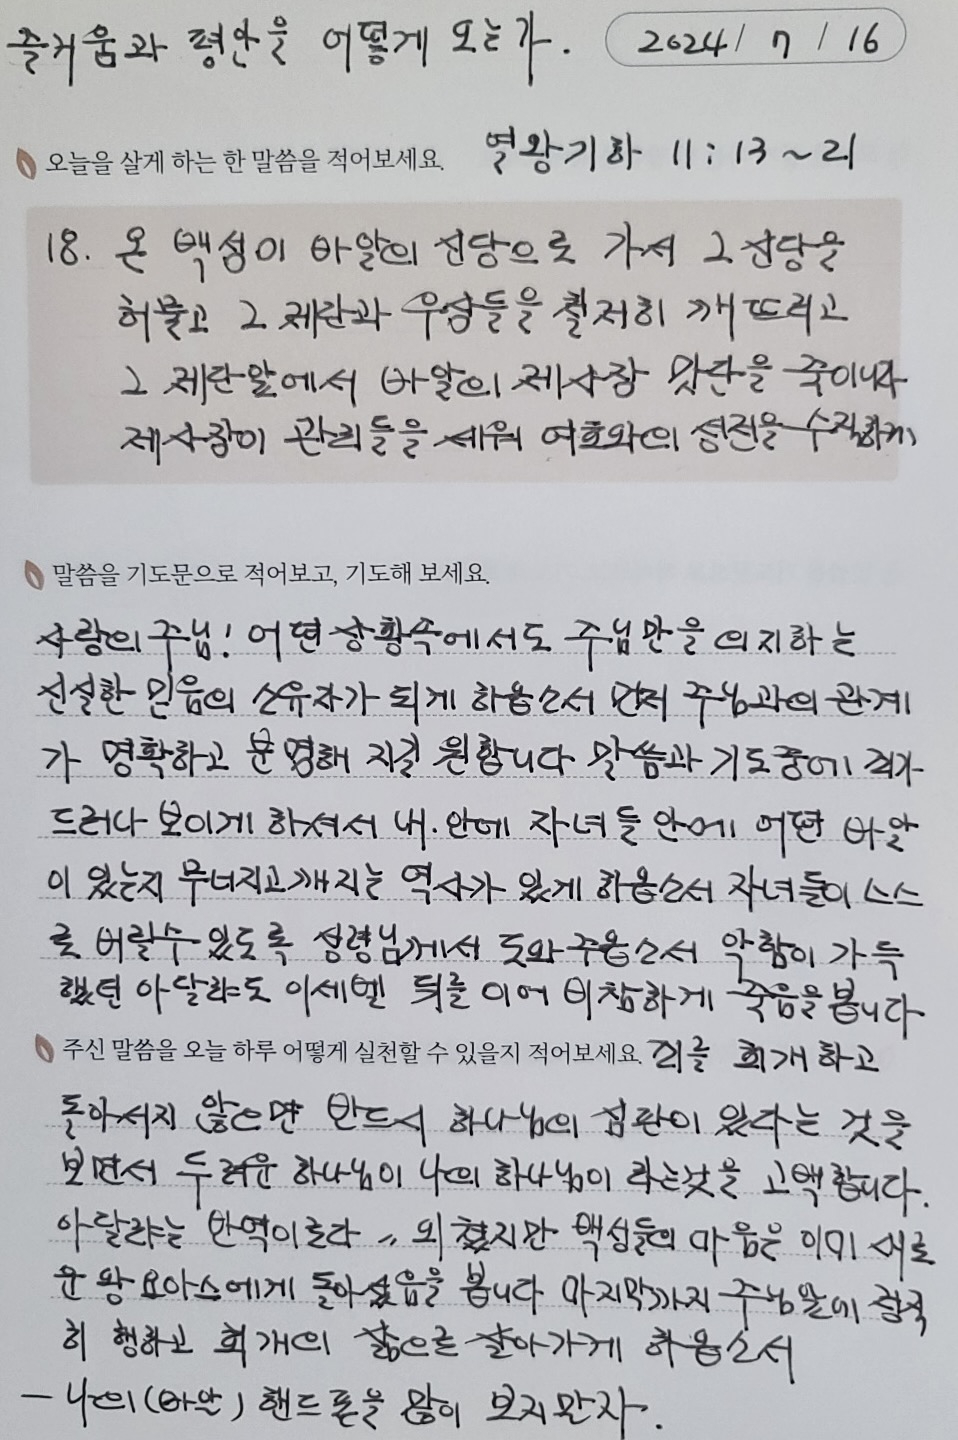 즐거움과 평안을 어떻게 오는가. 2024/ 7 / 16
오늘을 살게 하는 한 말씀을 적어보세요. 열왕기하 11:13~21
18. 온 백성이 바알의 신당으로 가서 그 신당을
허물고 그 제단과 우상들을 철저히 깨뜨리고
그 제단앞에서 바알의 제사장 맛단을 죽이니라
제사장이 관리들을 세워 여호와의 성전을 수직하게
말씀을 기도문으로 적어보고, 기도해 보세요.
사랑의 주님! 어떤 상황속에서도 주님만을 의지하는
신실한 믿음의 소유자가 되게 하옵소서 먼저 주님과의 관계
가 명확하고 분명해 지길 원합니다 말씀과 기도중에 죄가
드러나 보이게 하셔서 내.안에 자녀들 안에 어떤 바알
이 있는지 무너지고 깨지는 역사가 있게 하옵소서 자녀들이 스스
로 버릴수 있도록 성령님께서 도와주옵소서 악함이 가득
했던 아달랴도 이세벨 뒤를 이어 비참하게 죽음을 봅니다
주신 말씀을 오늘 하루 어떻게 실천할 수 있을지 적어보세요. 죄를 회개하고
돌아서지 않으면 반드시 하나님의 심판이 있다는 것을
보면서 두려운 하나님이 나의 하나님이 라는것을 고백합니다.
아달랴는 반역이로다 〃 외쳤지만 백성들의 마음은 이미 새로
운 왕 요아스에게 돌아섰음을 봅니다 마지막까지 주님앞에 정직
히 행하고 회개의 삶으로 살아가게 하옵소서
— 나의(바알) 핸드폰을 많이 보지말자.